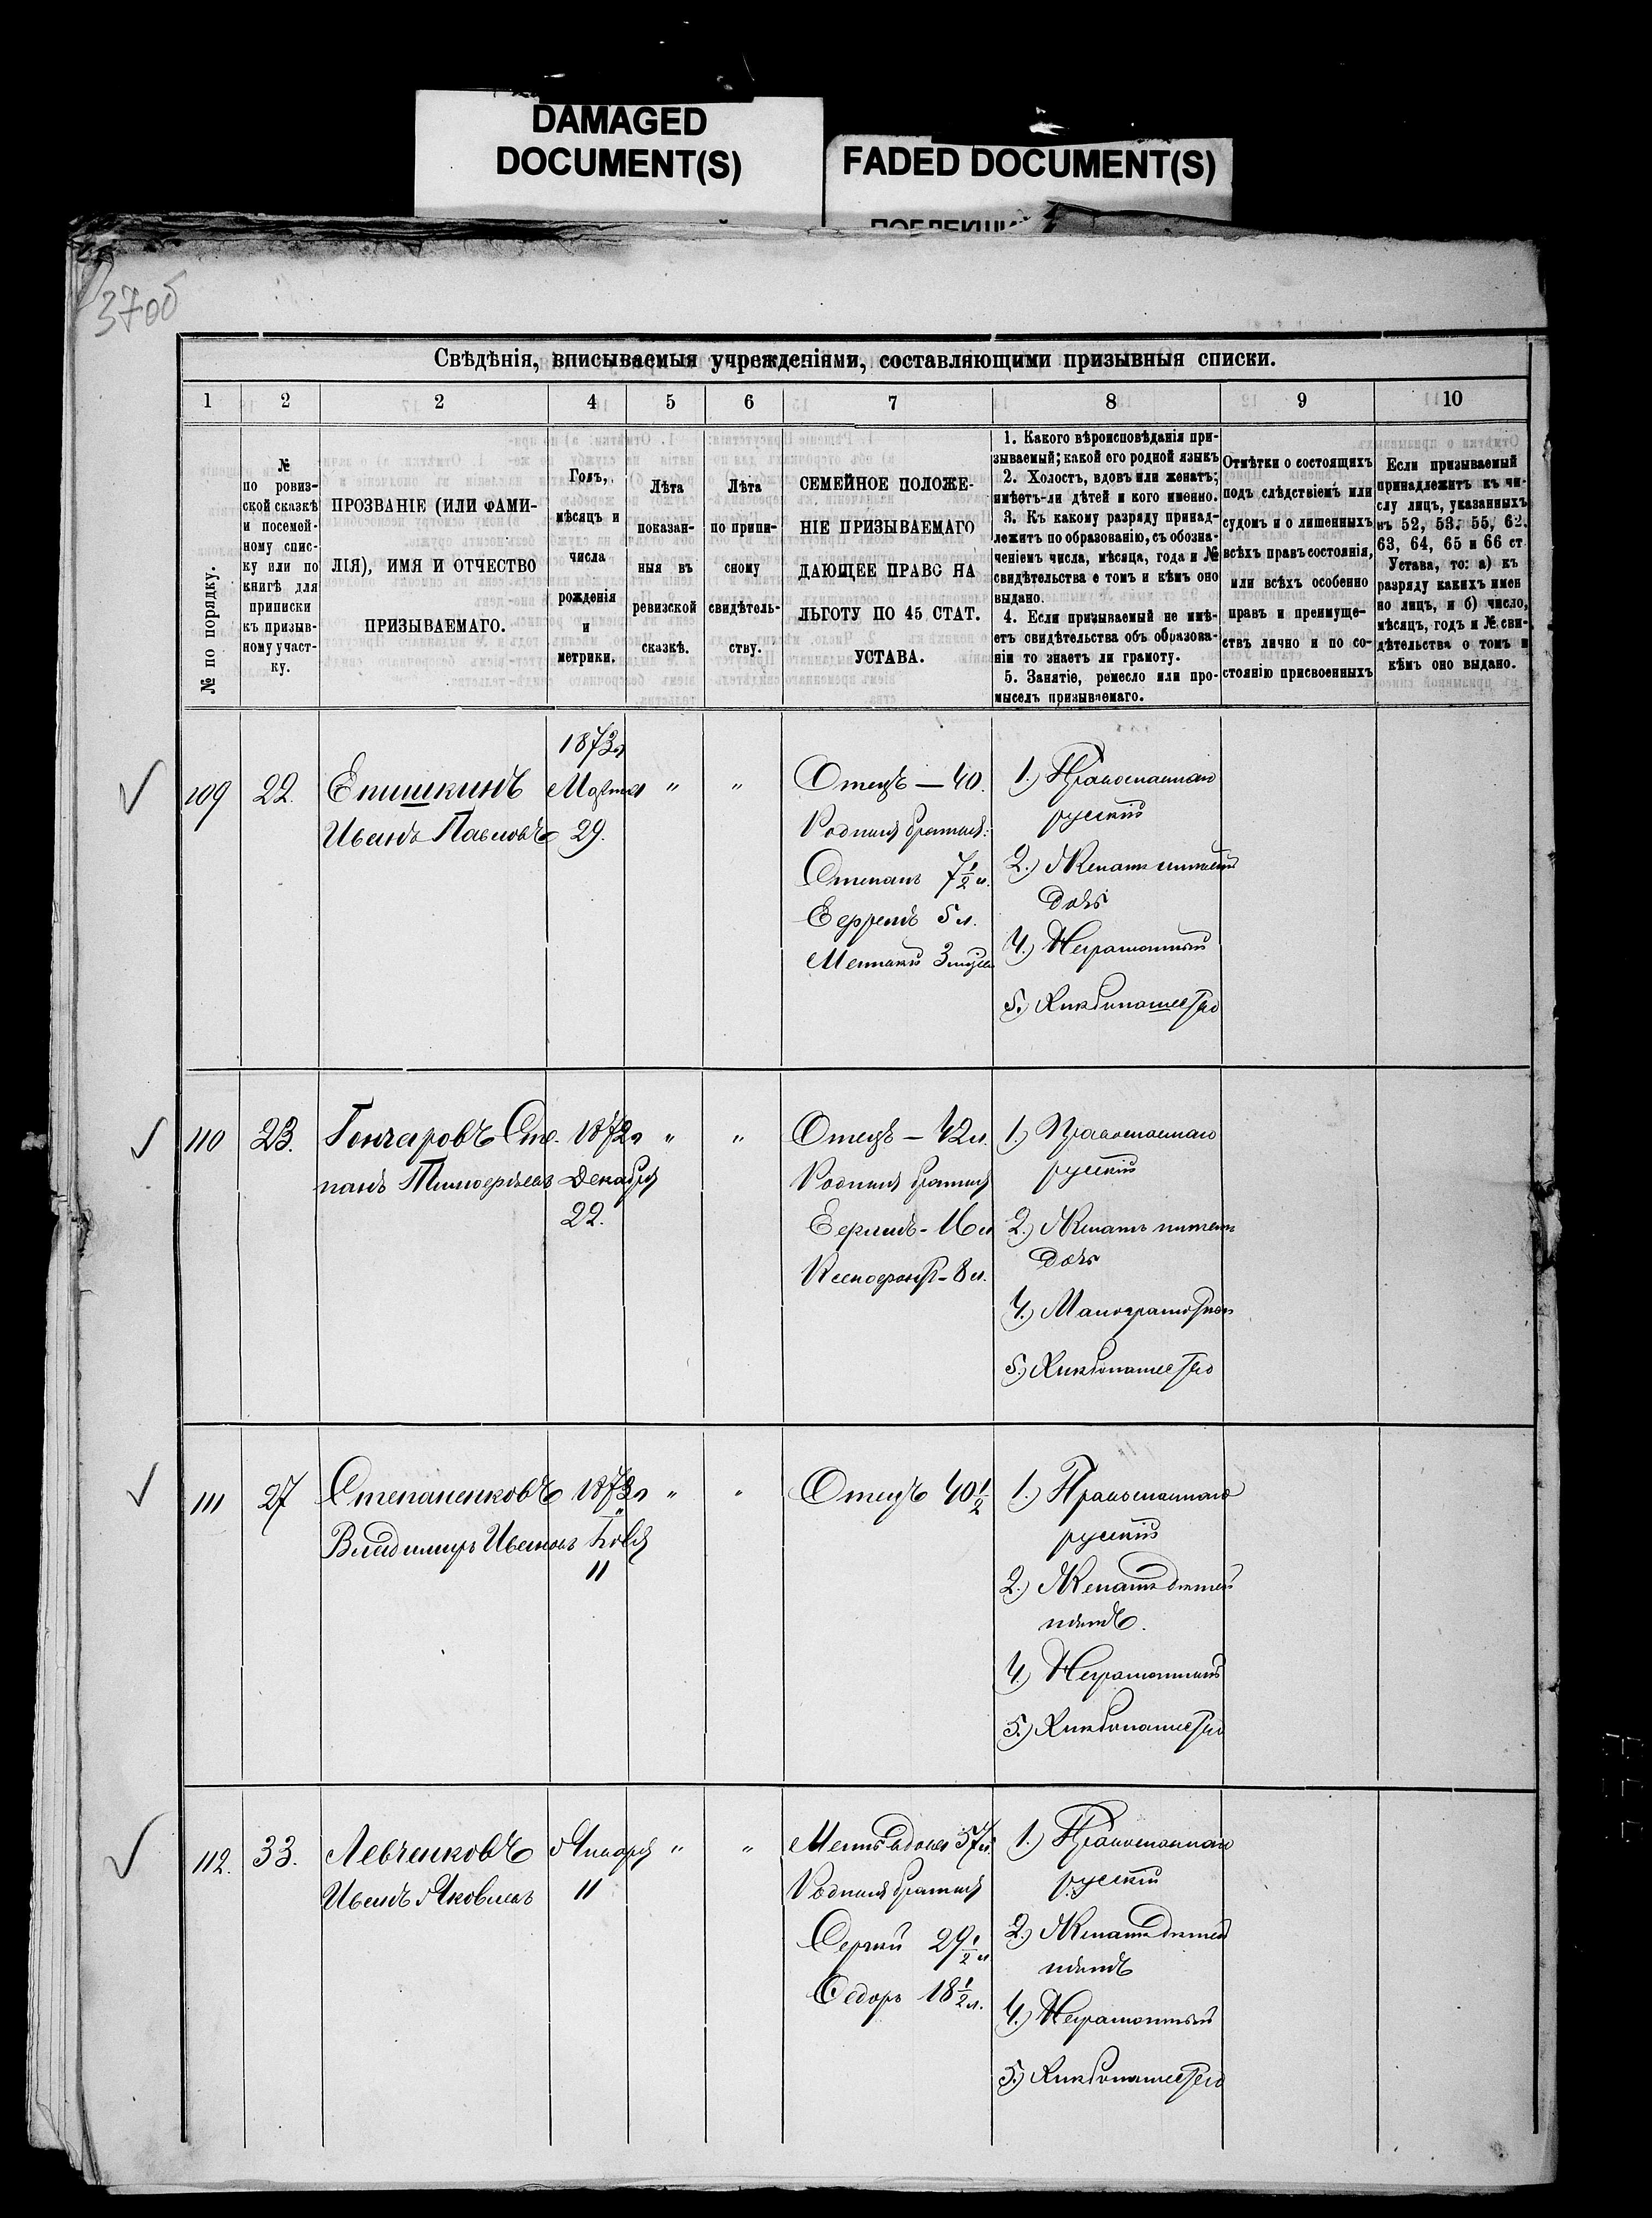 DAMAGED
DOCUMENT(S)
FADED DOCUMENT(S)
37об
Свѣдѣнія, вписываемыя учрежденіями, составляющими призывныя списки.
1 2 2 4 5 6 7 8 9 10
№ по порядку.
№
по ровиз-
ской сказкѣ
и посемей-
ному спис-
ку или по
книгѣ для
приписки
къ призыв-
ному участ-
ку.
ПРОЗВАНІЕ (ИЛИ ФАМИ-
ЛІЯ), ИМЯ И ОТЧЕСТВО
ПРИЗЫВАЕМАГО.
Годъ,
мѣсяцъ и
числа
рожденія
и
метрики.
Лѣта
показан-
ныя въ
ревизской
сказкѣ.
Лѣта
по припи-
сному
свидѣтель-
ству.
СЕМЕЙНОЕ ПОЛОЖЕ-
НІЕ ПРИЗЫВАЕМАГО
ДАЮЩЕЕ ПРАВО НА
ЛЬГОТУ ПО 45 СТАТ.
УСТАВА.
1. Какого вѣроисповѣданія при-
зываемый; какой его родной языкъ
2. Холостъ, вдовъ или женатъ;
имѣетъ-ли дѣтей и кого именно.
3. Къ какому разряду принад-
лежитъ по образованію, съ обозна-
ченіемъ числа, мѣсяца, года и №
свидѣтельства о томъ и кѣмъ оно
выдано.
4. Если призываемый не имѣ-
етъ свидѣтельства объ образова-
ніи то знаетъ ли грамоту.
5. Занятіе, ремесло или про-
мыселъ призываемаго.
Отмѣтки о состоящихъ
подъ слѣдствіемъ или
судомъ и о лишенныхъ
всѣхъ правъ состоянія,
или всѣхъ особенно
правъ и преимуще-
ствъ лично и по со-
стоянію присвоенныхъ
Если призываемый
принадлежитъ къ чи-
слу лицъ, указанныхъ
въ 52, 53, 55, 62.
63, 64, 65 и 66 ст
Устава, то: а) къ
разряду какихъ имен
но лицъ, и б) число,
мѣсяцъ, годъ и № сви-
дѣтельства о томъ и
кѣмъ оно выдано.
109 22. Епишкинъ
Иванъ Павловъ
1873г
Марта
29.
" "
Отецъ — 40.
Родныя братья:
Степанъ 7 1/2 л.
Ефремъ 5 л.
1.) Православнаго
русскій
2.) Женатъ имѣетъ
дочь
4.) Неграмотный
5.) Хлѣбопашество
110 23. Гончаровъ Сте-
панъ Тимофѣевъ
1872г
Декабря
22.
" "
Отецъ — 42 л.
Родныя братья
16 л
Ксенофонтъ - 8 л.
1.) Православнаго
русскій
2.) Женатъ имѣетъ
дочь
4.) Малограмотный
5.) Хлѣбопашество
111 27 Степаненковъ
Владимиръ Ивановъ
11
" "
Отецъ 40 1/2
1.) Православнаго
русскій
2.) Женатъ дѣтей
нѣтъ.
4.) Неграмотный
5.) Хлѣбопашество
112. 33. Левченковъ
Иванъ Яковлевъ
Января
11
" "
Мать вдова 57 л.
Родныя братья
Сергѣй 29 1/2 л
Федоръ 18 1/2 л.
1.) Православнаго
русскій
2.) Женатъ дѣтей
нѣтъ
4.) Неграмотный
5.) Хлѣбопашество